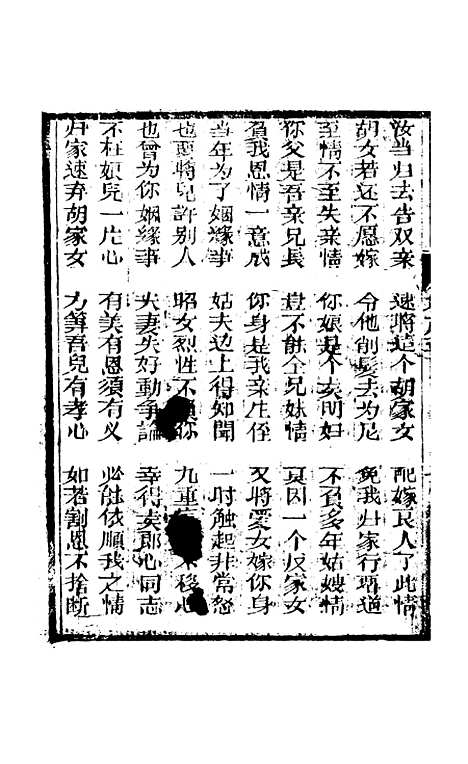 汝当归去告双亲 速將這个胡家女 配嫁良人了此情
胡女若还不愿嫁 令他削髮去为尼 免我归家行孝道
至情不至失亲情 你娘是个文明妇 不負多年姑嫂情
你父是吾亲兄長 豈不能全兄妹情 莫因一个反家女
負我恩情一意成 你身是我亲生侄 又將愛女嫁你身
当年为了姻缘事 姑夫边上得知聞 一时触起非常怒
也要將兒許別人 昭女烈性不 你 九重 不移心
也曾为你姻缘事 夫妻失好動争論 幸得夫郎心同志
不枉娘兒一片心 有美有恩須有义 必能依順我之情
归家速弃胡家女 方算吾兒有孝心 如若割恩不捨断